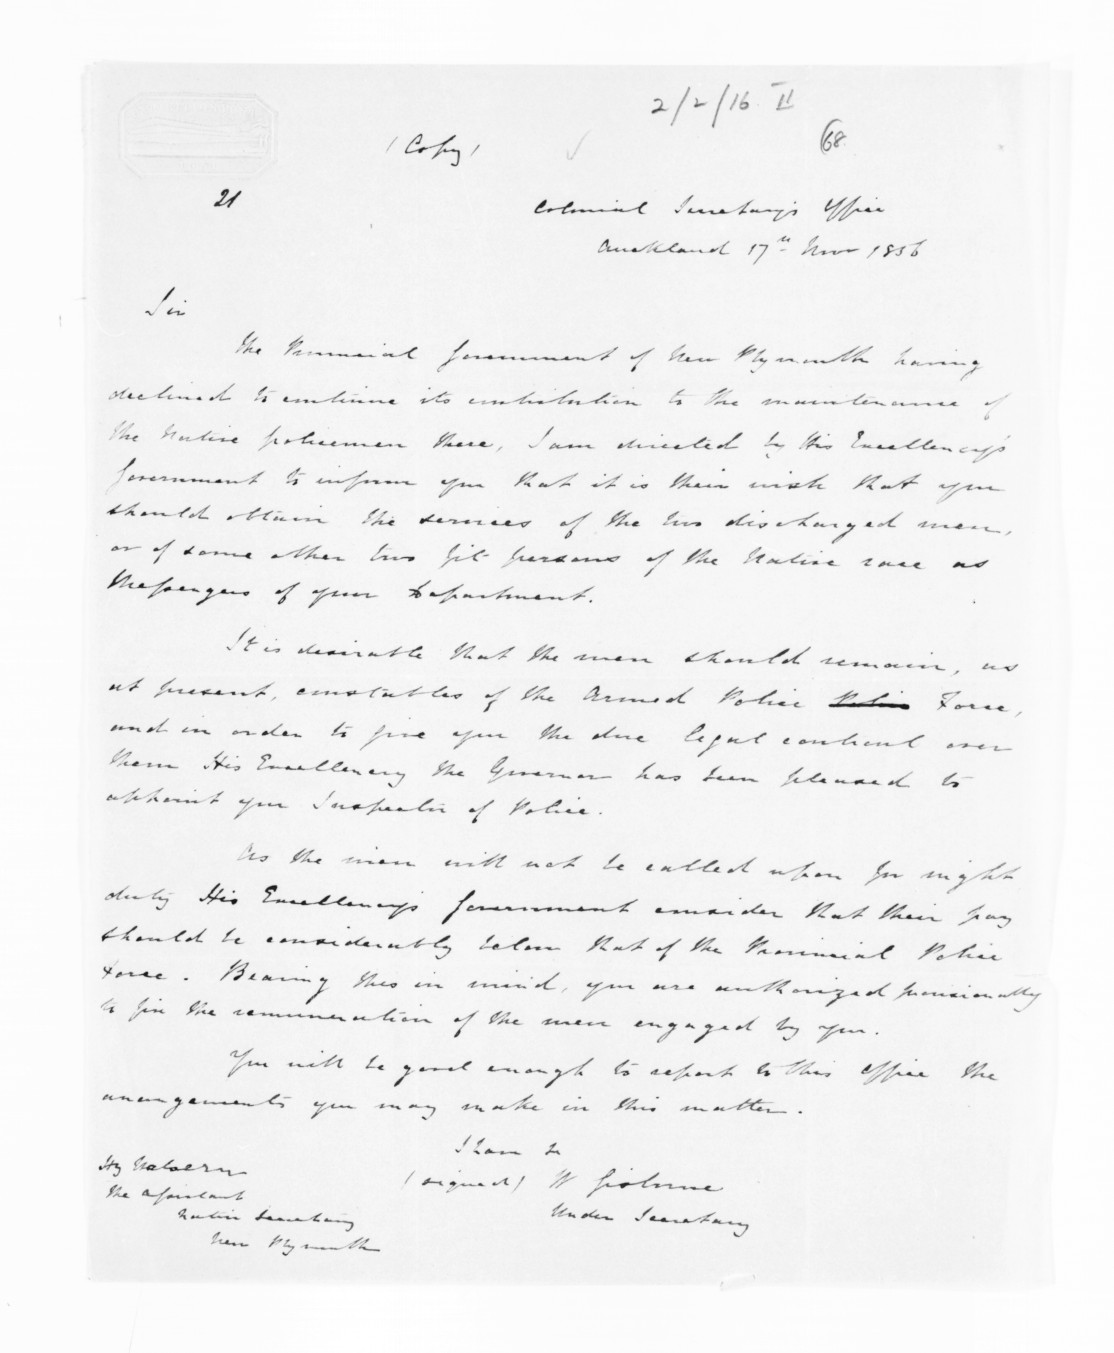 2/2/16 II
68
(Copy)
21
Colonial Secretary's Office
Auckland 17th Nov 1856
Sir
The Provincial Government of New Plymouth having
declined to continue its contribution to the maintenance of
the Native policemen there, I am directed by His Excellency's
Government to inform you that it is their wish that you
should obtain the services of the two discharged men,
or of some other two fit persons of the Native race as
Messengers of your Department.
It is desirable that the men should remain, as
at present, constables of the Armed Police Police Force,
and in order to give you the due legal control over
them His Excellency the Governor has been pleased to
appoint you Inspector of Police.
As the men will not be called upon for night
duty His Excellency's Government consider that their pay
should be considerably below that of the Provincial Police
Force. Bearing this in mind, you are authorized provisionally
to fix the remuneration of the men engaged by you.
You will be good enough to report to this Office the
arrangements you may make in this matter.
I have &c
(signed) W Gisborne
Under Secretary
Hy Halse Esqre
The Assistant
Native Secretary
New Plymouth